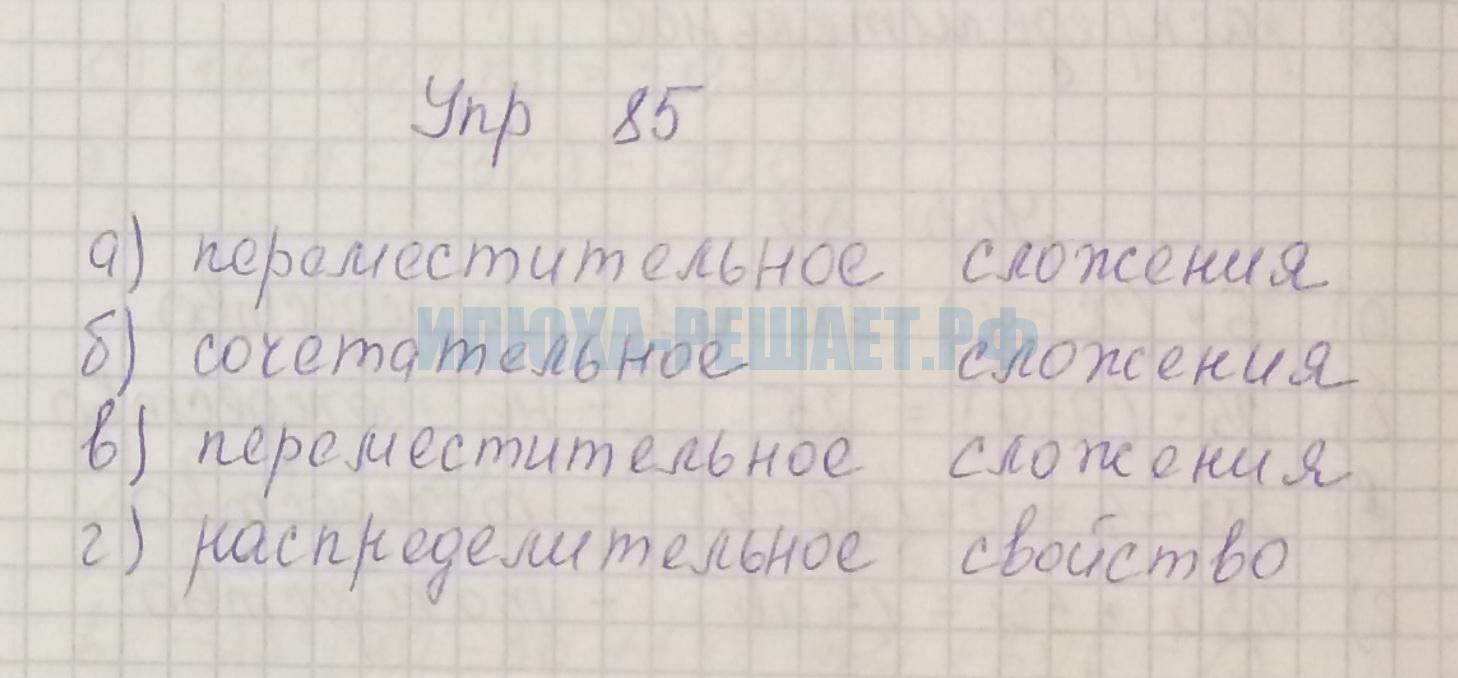 Упр 85
а) переместительное сложения
ИЛЮХА-РЕШАЕТ.РФ
б) сочетательное сложения
в) переместительное сложения
г) распределительное свойство